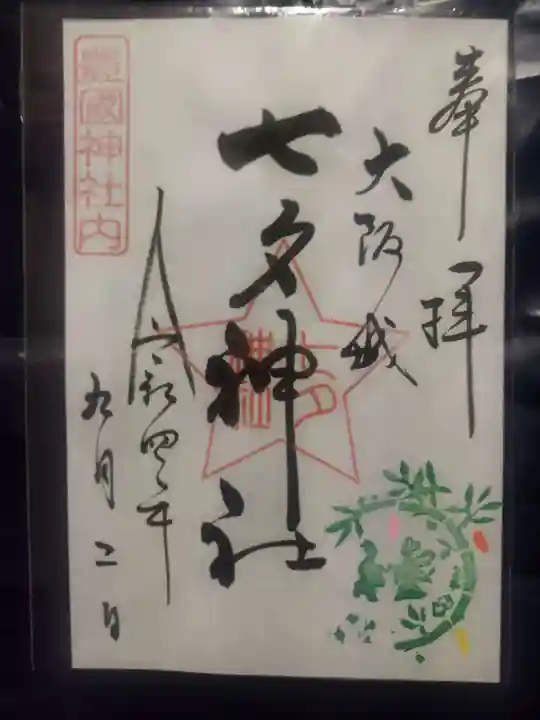 奉拝
大阪城
七夕神社
七夕
神社
令和四年
九月二日
豐國神社内